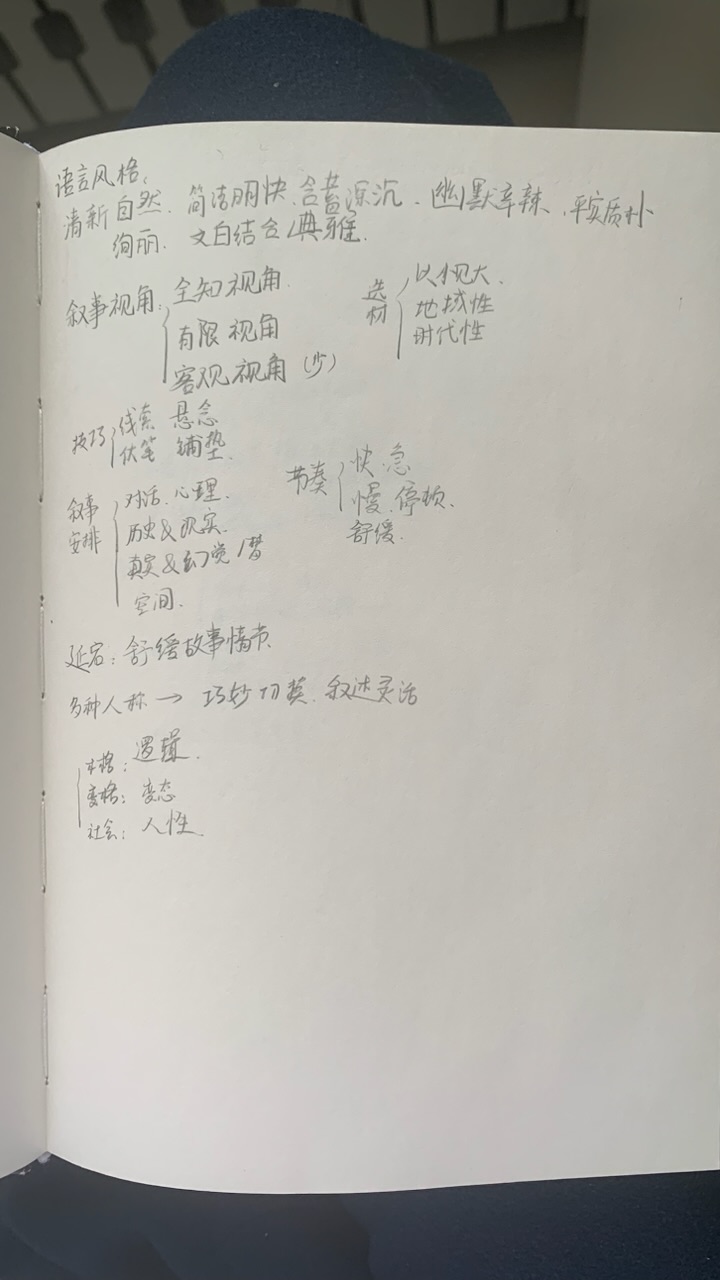 语言风格:
清新自然、简洁明快、含蓄深沉、幽默辛辣、平实质朴
绚丽、文白结合/典雅、
叙事视角: 全知视角
有限视角
客观视角（少）
选材 以小见大、
地域性
时代性
技巧 线索 悬念
伏笔 铺垫
叙事安排 对话、心理、
历史&现实、
真实&幻觉/梦
空间、
节奏 快、急
慢、停顿、
舒缓、
延宕: 舒缓故事情节、
多种人称 → 巧妙切换、叙述灵活
本格: 逻辑、
变格: 变态
社会: 人性、